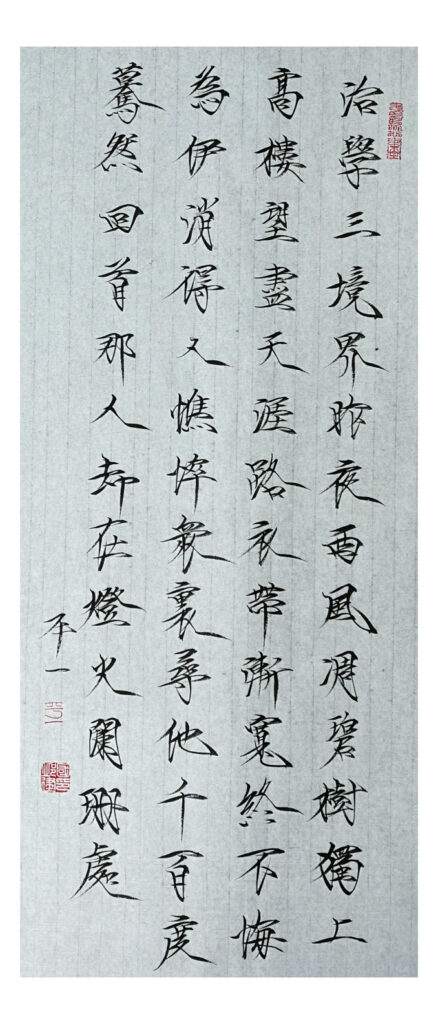 治學三境界昨夜西風凋碧樹獨上
高樓望盡天涯路衣帶漸寬終不悔
為伊消得人憔悴衆裏尋他千百度
驀然回首那人却在燈火闌珊處
平一
平一